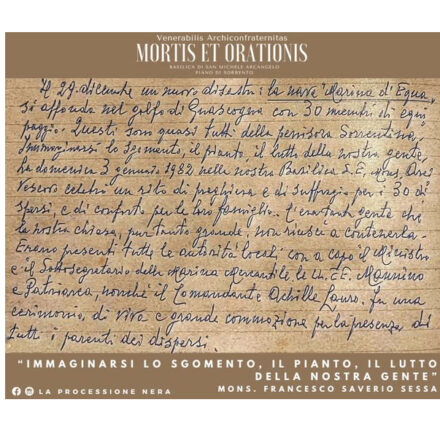 Venerabilis Archiconfraternitas
MORTIS ET ORATIONIS
BASILICA DI SAN MICHELE ARCANGELO
PIANO DI SORRENTO
Il 29 dicembre un nuovo disastro: la nave "Marina d'Equa,
si affonda nel golfo di Guascogna con 30 membri di equi
paggio. Questi sono quasi tutti della penisola Sorrentina.
Immaginarsi lo sgomento, il pianto, il lutto della nostra gente.
La domenica 3 gennaio 1982 nella nostra Basilica S. E. Mons.
Vescovo celebrò un rito di preghiera e di suffragio per i 30 di
spersi, e di conforto per le loro famiglie. gente che
la nostra chiesa, pur tanto grande, non riusciva a contenerla.
Erano presenti tutte le autorità locali con a capo il Ministro
e il Sottosegretario della Marina Mercantile le LL. EE. Mannino
e Patriarca, nonchè il Comandante Achille Lauro. Fu una
cerimonia di viva e grande commozione per la presenza di
tutti i parenti dei dispersi.
"IMMAGINARSI LO SGOMENTO, IL PIANTO, IL LUTTO
DELLA NOSTRA GENTE"
MONS. FRANCESCO SAVERIO SESSA
LA PROCESSIONE NERA